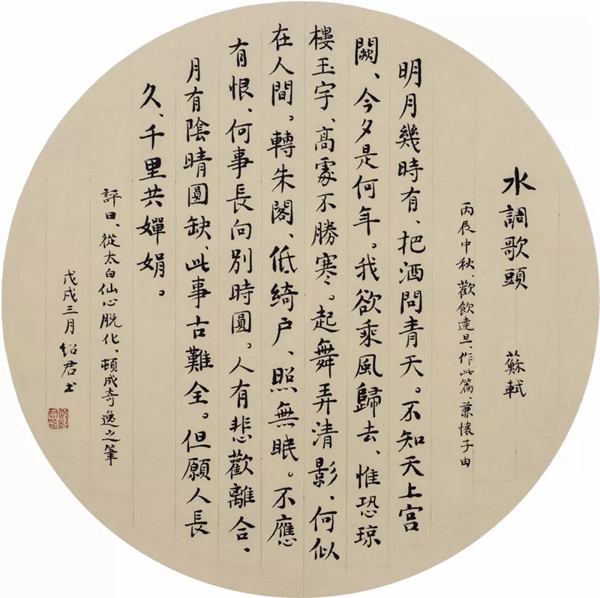 水調歌頭 蘇軾
丙辰中秋、歡飲達旦、作此篇、兼懷子由
明月幾時有、把酒問青天。不知天上宮
闕、今夕是何年。我欲乘風歸去、惟恐瓊
樓玉宇、高處不勝寒。起舞弄清影、何似
在人間。轉朱閣、低綺户、照無眠。不應
有恨、何事長向別時圓。人有悲歡離合、
月有陰晴圓缺、此事古難全。但願人長
久、千里共嬋娟。
評曰、從太白仙心脫化、頓成奇逸之筆
戊戌三月 紹君書